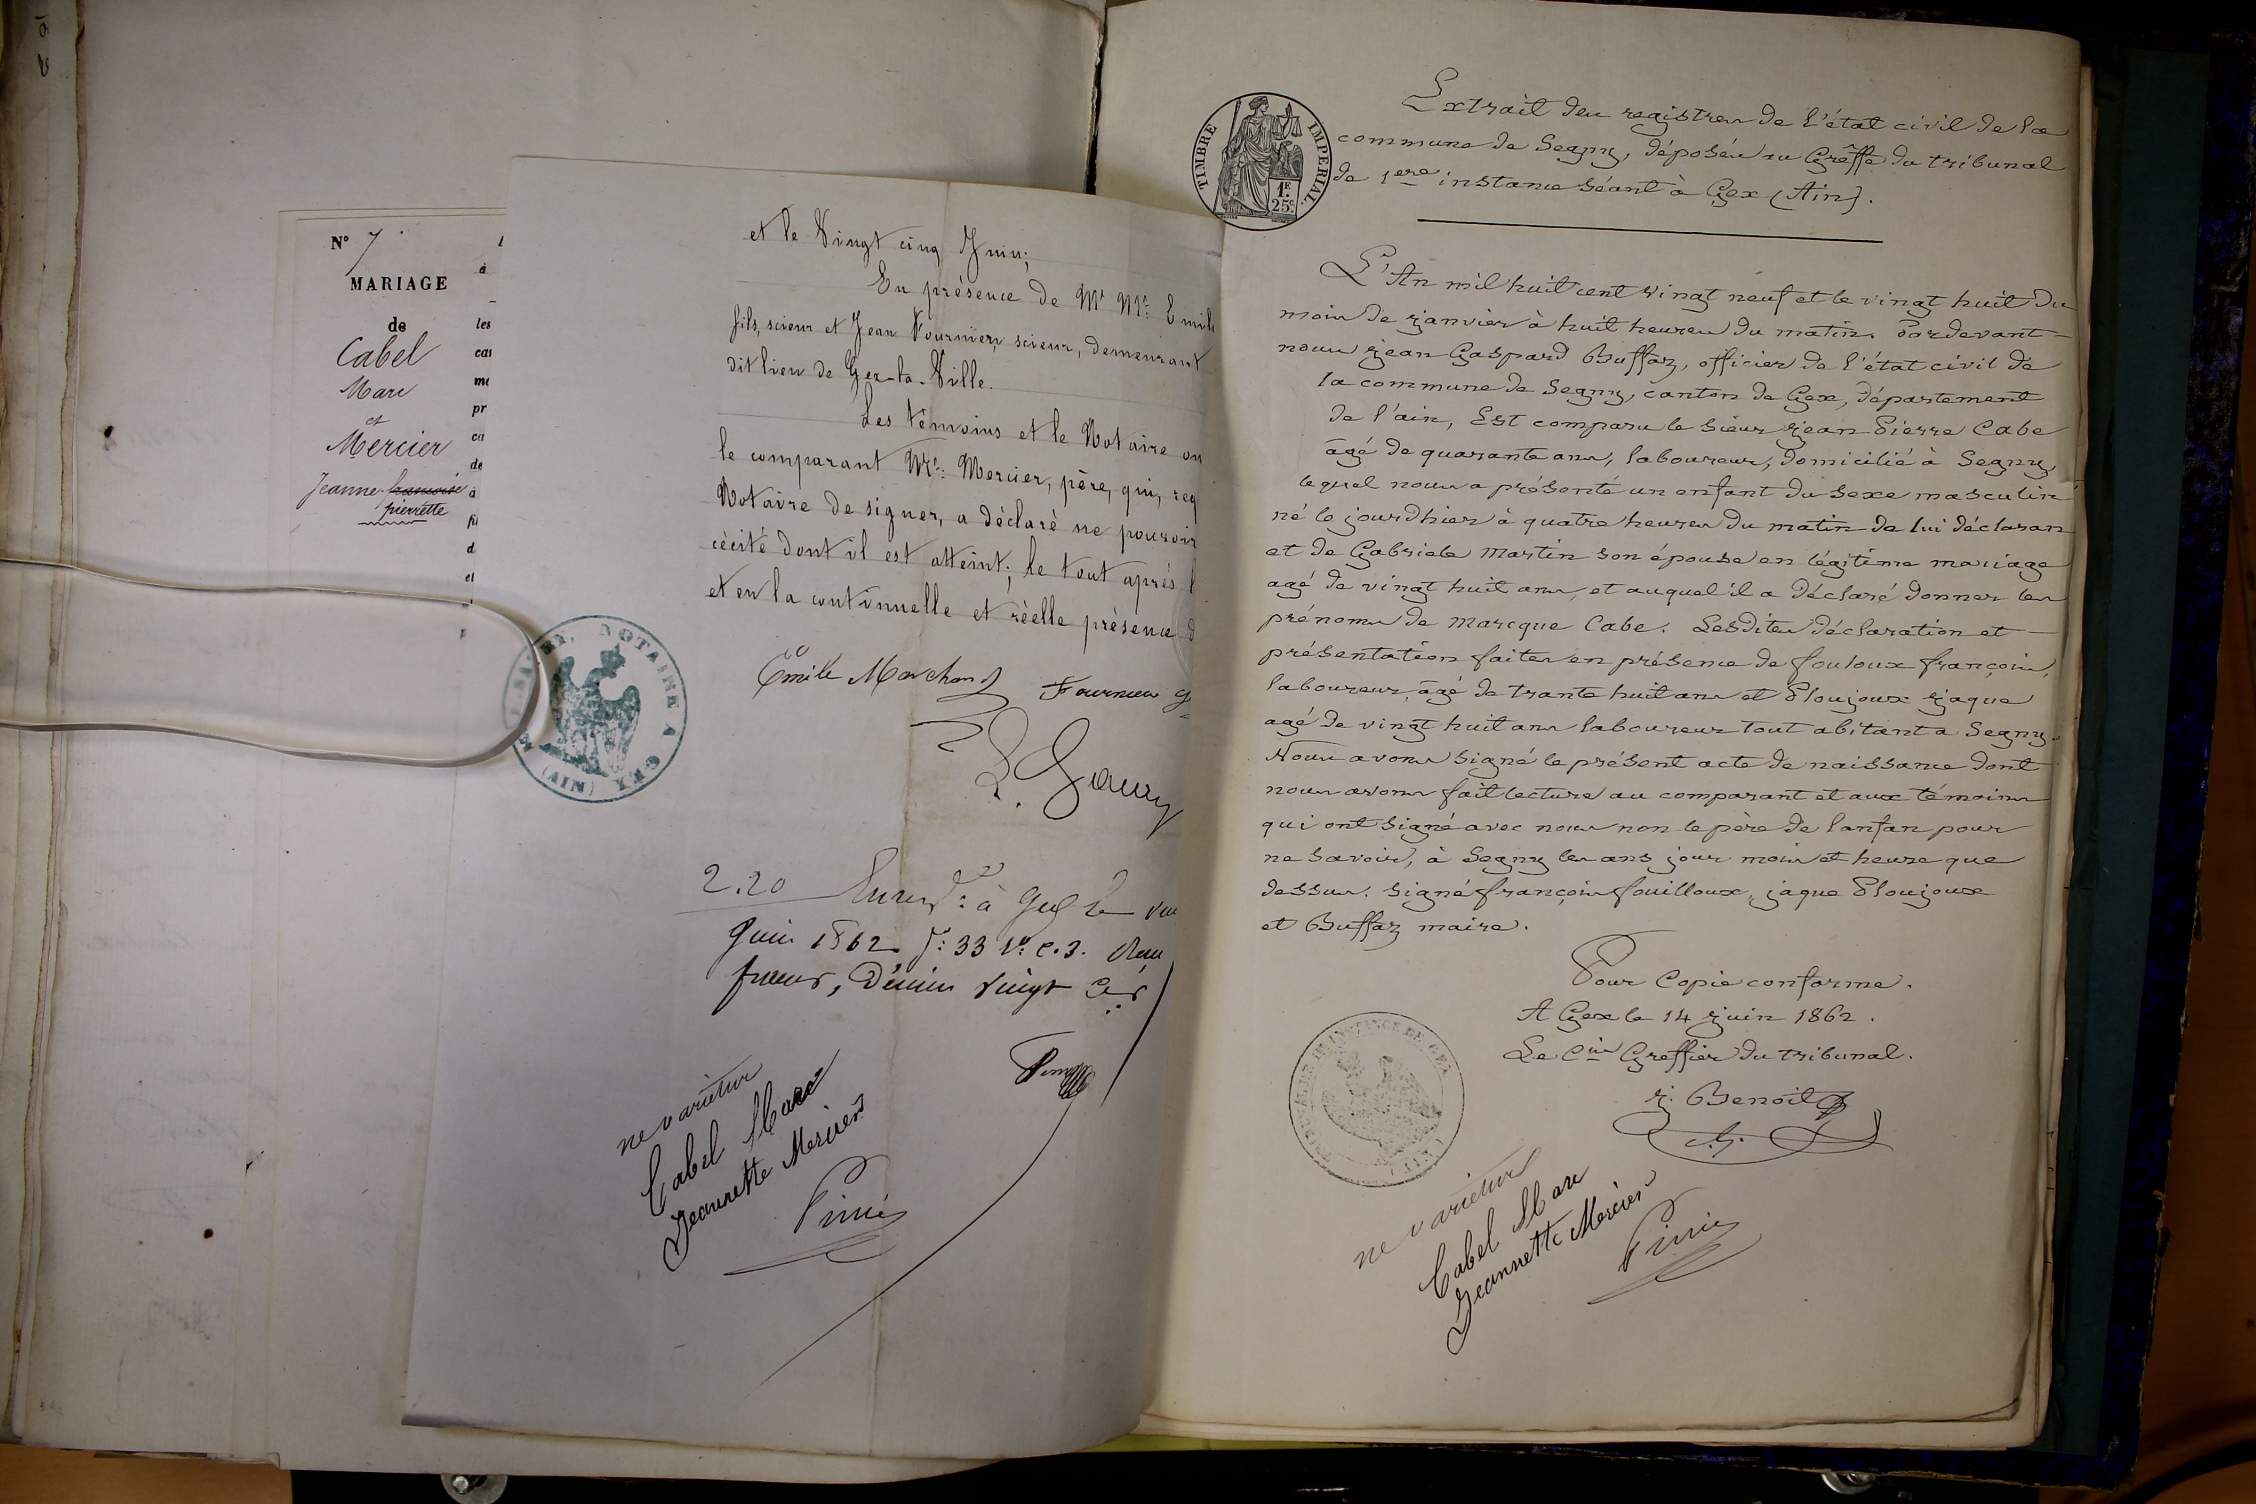 N° 7
MARIAGE
de
Cabel
Marc
et
Mercier
Jeanne françoise
pierrette
à
les
pr
de
à
d
et
et le Vingt cinq Juin;
En présence de Mr Mr: Emile
fils, scieur et Jean Fournier, scieur, demeurant
dit lieu de Gex-la-Ville.
Les témoins et le Notaire on
le comparant Mr: Mercier, père, qui, req
Notaire de signer, a déclaré ne pouvoir
cécité dont il est atteint; le tout après l
et en la continuelle et réelle présence d
Emile Marchand Fournier
NOTAIRE A GEX
(AIN)
2.20 à Gex le
Juin 1862 f°: 33 v°: c. 3.
francs, Décime vingt
ne varietur
Cabel Marc
Jeannette Mercier
TIMBRE IMPERIAL
1F.
25c.
Extrait des registres de l'état civil de la
commune de Segny, déposés au Grêffe du tribunal
de 1ere instance séant à Gex (Ain).
L'An mil huit cent vingt neuf et le vingt huit du
mois de janvier à huit heures du matin. Pardevant
nous jean Gaspard Buffaz, officier de l'état civil de
la commune de Segny, canton de Gex, département
de l'ain, Est comparu le sieur jean Pierre Cabe
âgé de quarante ans, laboureur, domicilié à Segny
lequel nous a présenté un enfant du sexe masculin
né le jourdhier à quatre heures du matin de lui déclaran
et de Gabriele Martin son épouse en légitime mariage
agé de vingt huit ans, et auquel il a déclaré donner les
prénoms de Marcque Cabe. Lesdites déclaration et
présentation faites en présence de fouloux françois,
laboureur, âgé de trante huit ans et Ploujoux jaque
agé de vingt huit ans laboureur tout abitant a Segny.
Nous avons signé le présent acte de naissance dont
nous avons fait lecture au comparant et aux témoins
qui ont signé avec nous non le père de lanfan pour
ne savoir, à Segny les ans jour mois et heure que
dessus. signé françois fouilloux, jaque Ploujoux
et Buffaz maire.
Pour Copie conforme.
A Gex le 14 juin 1862.
Le Cis Greffier du tribunal.
j. Benoit
ne varietur
Cabel Marc
Jeannette Mercier